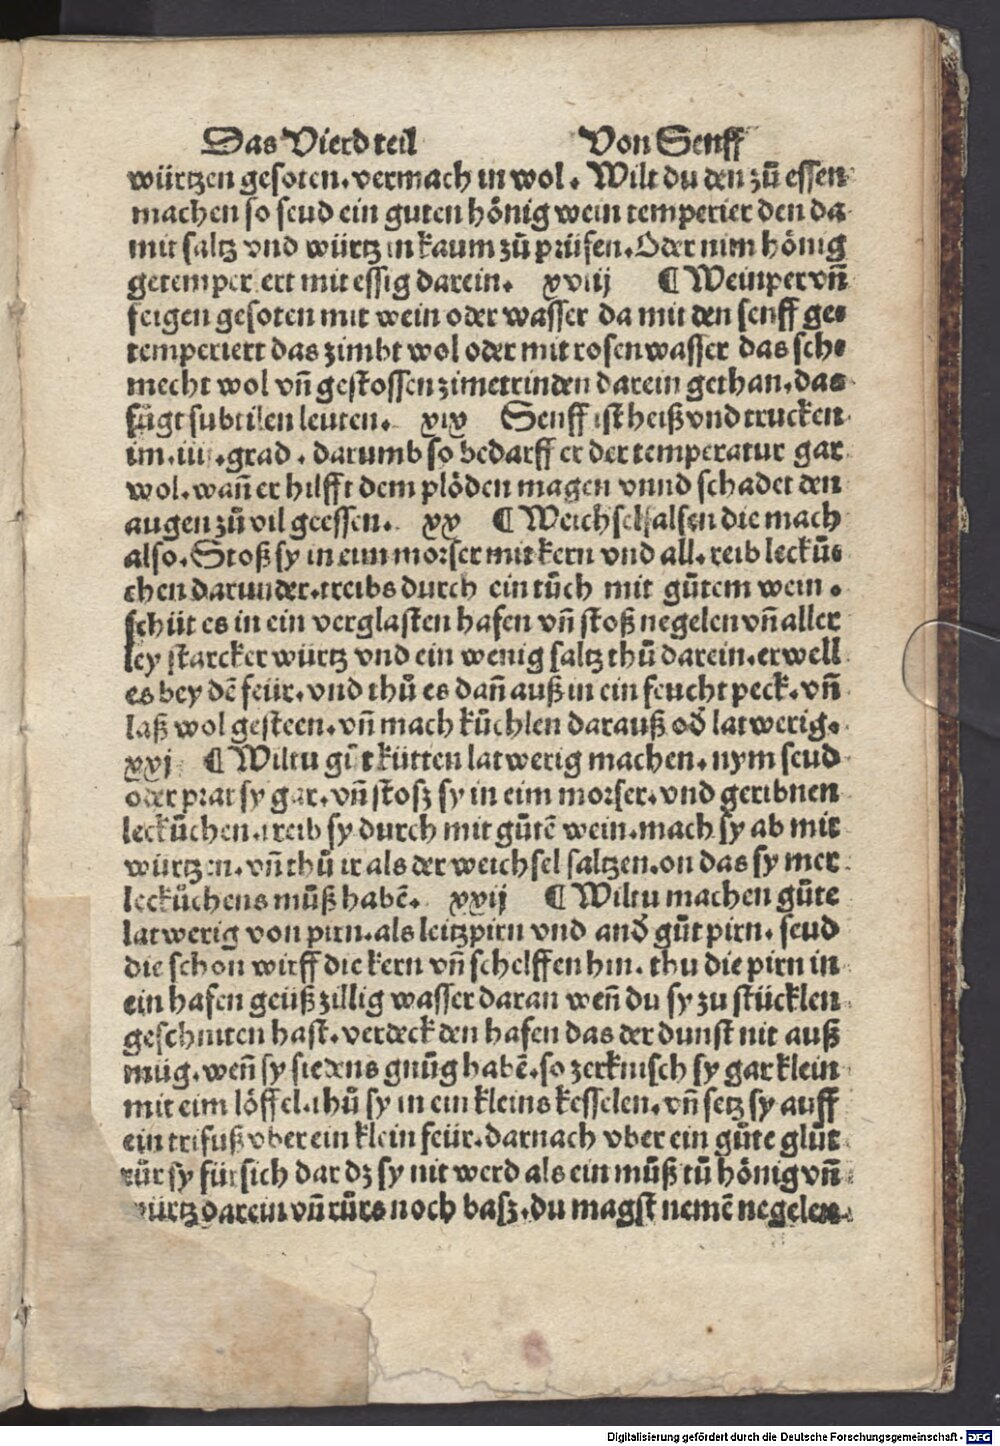 Das Vierd teil Von Senff
würtzen gesoten. vermach in wol. Wilt du den zů essen
machen so seud ein guten hönig wein temperier den da
mit saltz vnd würtz in kaum zů prüfen. Oder nim hönig
getemperiert mit essig darein. xviij ¶ Weinper vñ
feigen gesoten mit wein oder wasser da mit den senff ge⸗
temperiert das zimbt wol oder mit rosenwasser das sch⸗
mecht wol vñ gestossen zimetrinden darein gethan. das
fůgt subtilen leuten. xix Senff ist heiß vnd trucken
im. iiij. grad. darumb so bedarff er der temperatur gar
wol. wañ er hilfft dem plöden magen vnnd schadet den
augen zů vil geessen. xx ¶ Weichselsalsen die mach
also. Stoß sy in eim morser mit kern vnd all. reib leckůs
chen darunder. treibs durch ein tůch mit gůtem wein.
schüt es in ein verglasten hafen vñ stoß negelen vñ aller
ley starcker würtz vnd ein wenig saltz thů darein. erwell
es bey dē feür. vnd thů es dañ auß in ein feucht peck. vñ
laß wol gesteen. vñ mach kůchlen darauß oď latwerig.
xxj ¶ Wiltu gůt kütten latwerig machen. nym seud
oder prat sy gar. vñ stosz sy in eim morser. vnd geribnen
leckůchen. treib sy durch mit gůtē wein. mach sy ab mit
würtzen. vñ thů ir als der weichsel saltzen. on das sy mer
leckůchens můß habē. xxij ¶ Wiltu machen gůte
latwerig von pirn. als leitzpirn vnd anď gůt pirn. seud
die schon wirff die kern vñ schelffen hin. thu die pirn in
ein hafen geüß zillig wasser daran weñ du sy zu stücklen
geschniten hast. verdeck den hafen das der dunst nit auß
müg. weñ sy siedens gnůg habē. so zerknisch sy gar klein
mit eim löffel. thů sy in ein kleins kesselen. vñ setz sy auff
ein trifuß vber ein klein feür. darnach vber ein gůte glůt
růr sy fürsich dar dz sy nit werd als ein můß tů hönig vñ
würtz darein vñ růrs noch basz. du magst nemē negelen
Digitalisierung gefördert durch die Deutsche Forschungsgemeinschaft - DFG